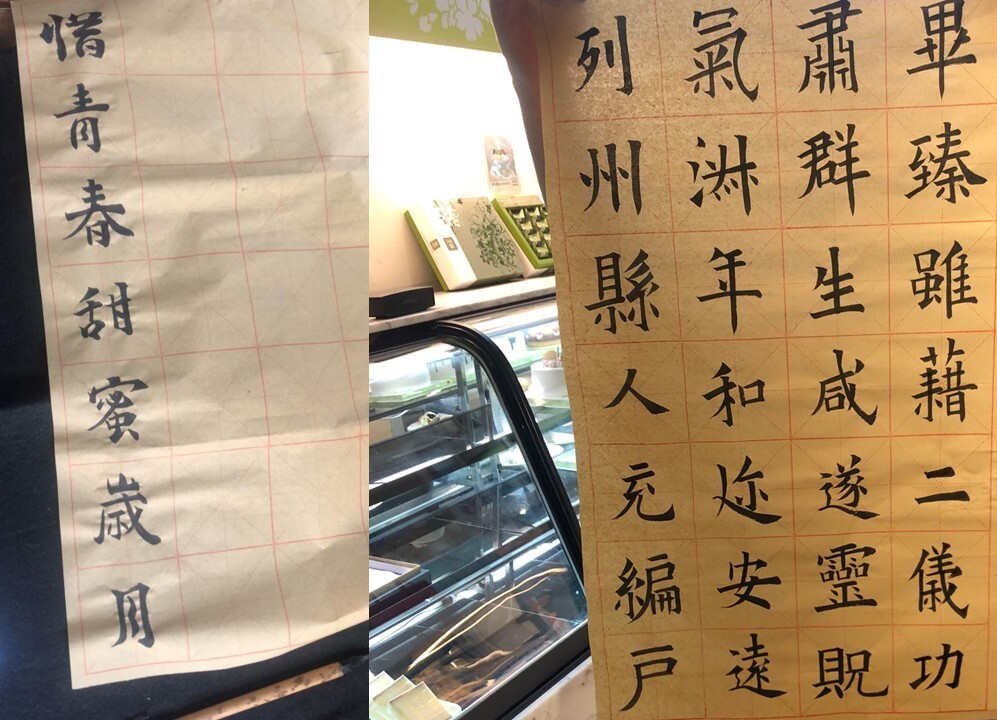 惜青春甜蜜歳月
列州縣人充編戶
氣淑年和迩安遠
肅群生咸遂靈貺
畢臻雖藉二儀功